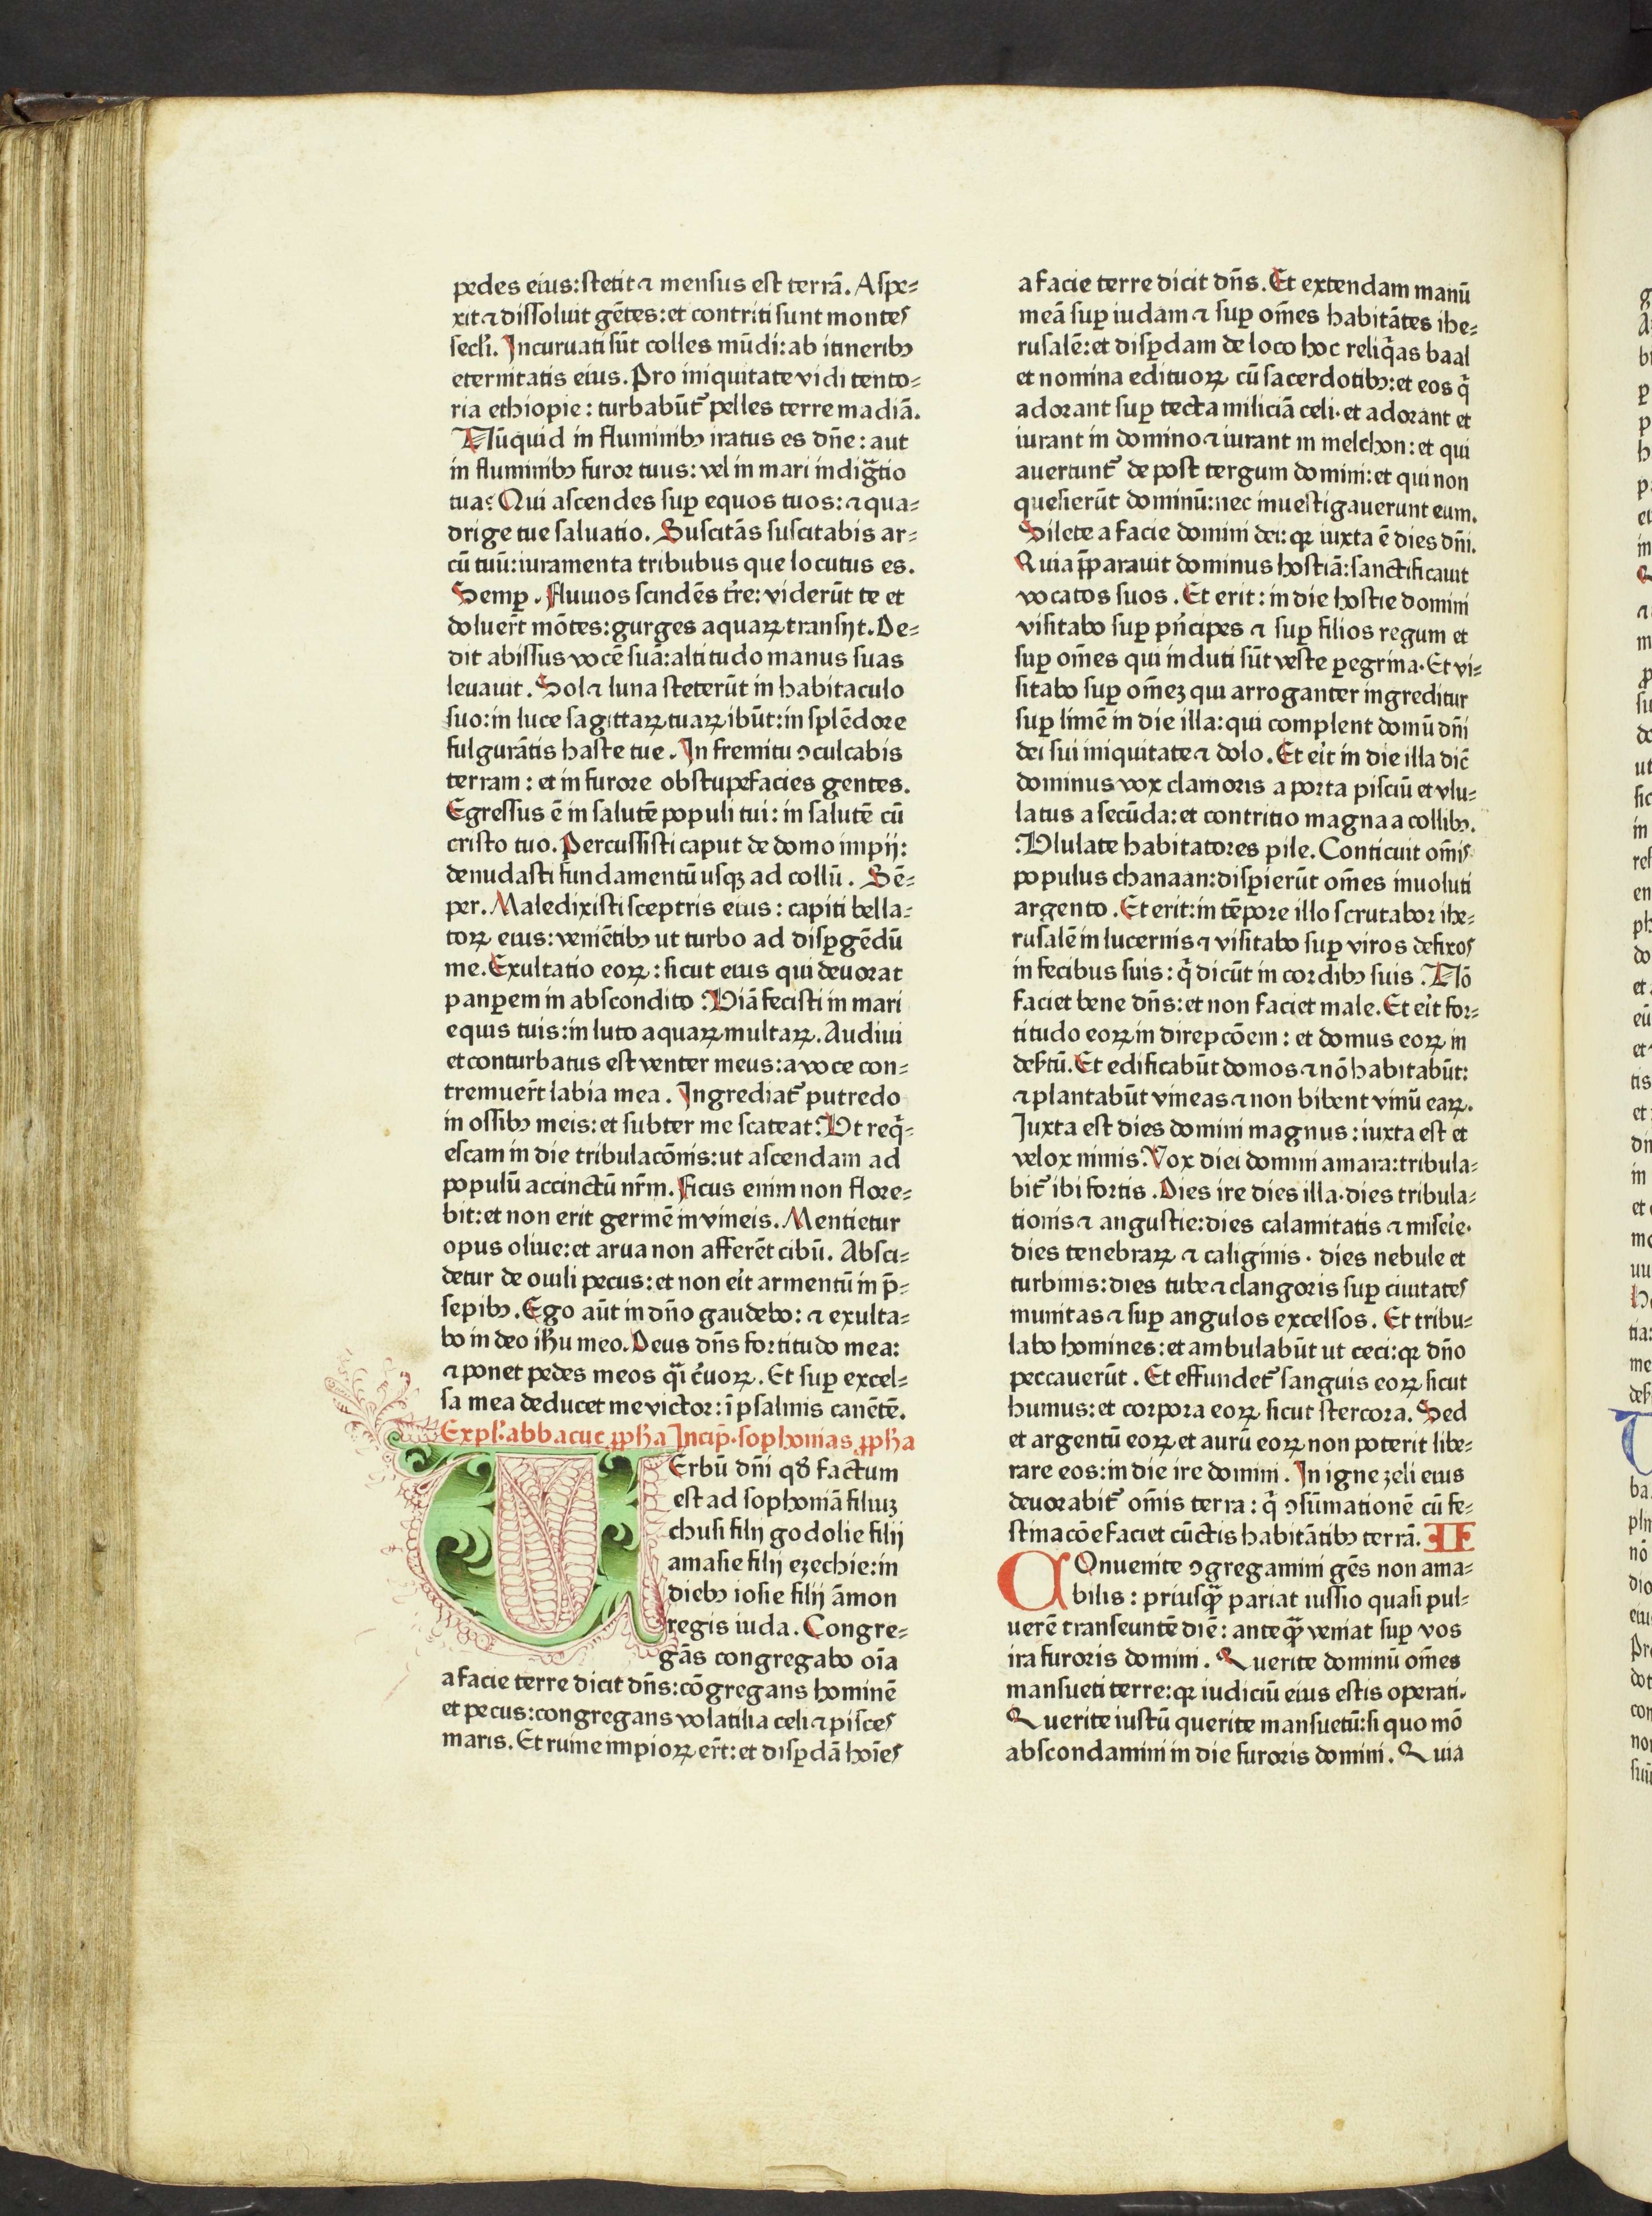 pedes eius:stetit ⁊ mensus est terrā. Aspe⸗
xit ⁊ dissoluit gētes:et contriti sunt montes
secl'i. Incuruati sūt colles mūdi:ab itineribꝫ
eternitatis eius. Pro iniquitate vidi tento⸗
ria ethiopie: turbabūt᷑ pelles terre madiā.
Nūquid in fluminibꝫ iratus es dn̄e: aut
in fluminibꝫ furor tuus: vel in mari indigᷓtio
tua? Qui ascendes suꝑ equos tuos: ⁊ qua⸗
drige tue saluatio. Suscitās suscitabis ar⸗
cū tuū:iuramenta tribubus que locutus es.
Semꝑ. fluuios scindēs tr̄e: viderūt te et
doluer̄t mōtes:gurges aquaꝝ transijt. De⸗
dit abissus vocē suā:altitudo manus suas
leuauit. Sol ⁊ luna steterūt in habitaculo
suo:in luce sagittaꝝ tuaꝝ ibūt:in splēdore
fulgurātis haste tue. In fremitu ↄculcabis
terram: et in furore obstupefacies gentes.
Egressus ē in salutē populi tui: in salutē cū
cristo tuo. Percussisti caput de domo impij:
denudasti fundamentū usqꝫ ad collū. Sē⸗
per. Maledixisti sceptris eius: capiti bella⸗
toꝝ eius: veniētibꝫ ut turbo ad disꝑgēdū
me. Exultatio eoꝝ: sicut eius qui deuorat
panperem in abscondito. Viā fecisti in mari
equis tuis:in luto aquaꝝ multaꝝ. Audiui
et conturbatus est venter meus:a voce con⸗
tremuer̄t labia mea. Ingrediat᷑ putredo
in ossibꝫ meis:et subter me scateat. Vt reqͥ⸗
escam in die tribulacōnis:ut ascendam ad
populū accinctū nr̄m. Ficus enim non flore⸗
bit:et non erit germē in vineis. Mentietur
opus oliue:et arua non afferēt cibū. Absci⸗
detur de ouili pecus:et non eit̓ armentū in p̄⸗
sepibꝫ. Ego aūt in dn̄o gaudebo: ⁊ exulta⸗
bo in deo ih̄u meo. Deus dn̄s fortitudo mea:
⁊ ponet pedes meos qᷓi c̓uoꝝ. Et suꝑ excel⸗
sa mea deducet me victor: ī psalmis canētē.
Expl̓. abbacuc ꝓph̄a Incip̄. sophonias ꝓph̄a
VErbū dn̄i qd̄ factum
est ad sophoniā filiuꝫ
chusi filij godolie filij
amasie filij ezechie:in
diebꝫ iosie filij āmon
regis iuda. Congre⸗
gās congregabo oīa
a facie terre dicit dn̄s:cōgregans hominē
et pecus:congregans volatilia celi ⁊ pisces
maris. Et ruine impioꝝ er̄t:et disꝑdā hoīes
a facie terre dicit dn̄s. Et extendam manū
meā suꝑ iudam ⁊ suꝑ om̄es habitātes ihe⸗
rusalē:et disꝑdam de loco hoc reliqᷓas baal
et nomina edituoꝝ cū sacerdotibꝫ:et eos qͥ
adorant suꝑ tecta miliciā celi. et adorant et
iurant in domino ⁊ iurant in melchon: et qui
auertunt᷑ de post tergum domini:et qui non
quesierūt dominū:nec inuestigauerunt eum.
Silete a facie domini dei: qꝛ iuxta ē dies dn̄i.
Quia p̄parauit dominus hostiā:sanctificauit
vocatos suos. Et erit: in die hostie domini
visitabo suꝑ pn̓cipes ⁊ suꝑ filios regum et
suꝑ om̄es qui induti sūt veste ꝑegrina. Et vi⸗
sitabo suꝑ om̄eꝫ qui arroganter ingreditur
suꝑ limē in die illa: qui complent domū dn̄i
dei sui iniquitate ⁊ dolo. Et eit̓ in die illa dic̄
dominus vox clamoris a porta pisciū et vlu⸗
latus a secūda:et contritio magna a collibꝫ.
Vlulate habitatores pile. Conticuit om̄is
populus chanaan:disꝑierūt om̄es inuoluti
argento. Et erit:in tēpore illo scrutabor ihe⸗
rusalē in lucernis ⁊ visitabo suꝑ viros defixos
in fecibus suis: qͥ dicūt in cordibꝫ suis. Nō
faciet bene dn̄s:et non faciet male. Et eit̓ for⸗
titudo eoꝝ in direpcōem: et domus eoꝝ in
des̓tū. Et edificabūt domos ⁊ nō habitabūt:
⁊ plantabūt vineas ⁊ non bibent vinū eaꝝ.
Iuxta est dies domini magnus: iuxta est et
velox nimis. Vox diei domini amara:tribula⸗
bit᷑ ibi fortis. Dies ire dies illa. dies tribula⸗
tionis ⁊ angustie:dies calamitatis ⁊ misei̓e.
dies tenebraꝝ ⁊ caliginis. dies nebule et
turbinis:dies tube ⁊ clangoris suꝑ ciuitates
munitas ⁊ suꝑ angulos excelsos. Et tribu⸗
labo homines:et ambulabūt ut ceci:qꝛ dn̄o
peccauerūt. Et effundet᷑ sanguis eoꝝ sicut
humus:et corpora eoꝝ sicut stercora. Sed
et argentū eoꝝ et aurū eoꝝ non poterit libe⸗
rare eos:in die ire domini. In igne zeli eius
deuorabit᷑ om̄is terra: qͥ ↄsūmationē cū fe⸗
stinacōe faciet cūctis habitātibꝫ terrā. II
COnuenite ↄgregamini gēs non ama⸗
bilis: priusqᷓꝫ pariat iussio quasi pul⸗
uerē transeuntē diē: anteqᷓꝫ veniat suꝑ vos
ira furoris domini. Querite dominū om̄es
mansueti terre:qꝛ iudiciū eius estis operati.
Querite iustū querite mansuetū:si quo mō
abscondamini in die furoris domini. Quia